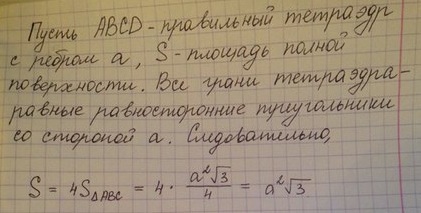 Пусть ABCD - правильный тетраэдр
с ребром a, S - площадь полной
поверхности. Все грани тетраэдра -
равные равносторонние треугольники
со стороной a. Следовательно,
S = 4S△ABC = 4 · a²√3/4 = a²√3